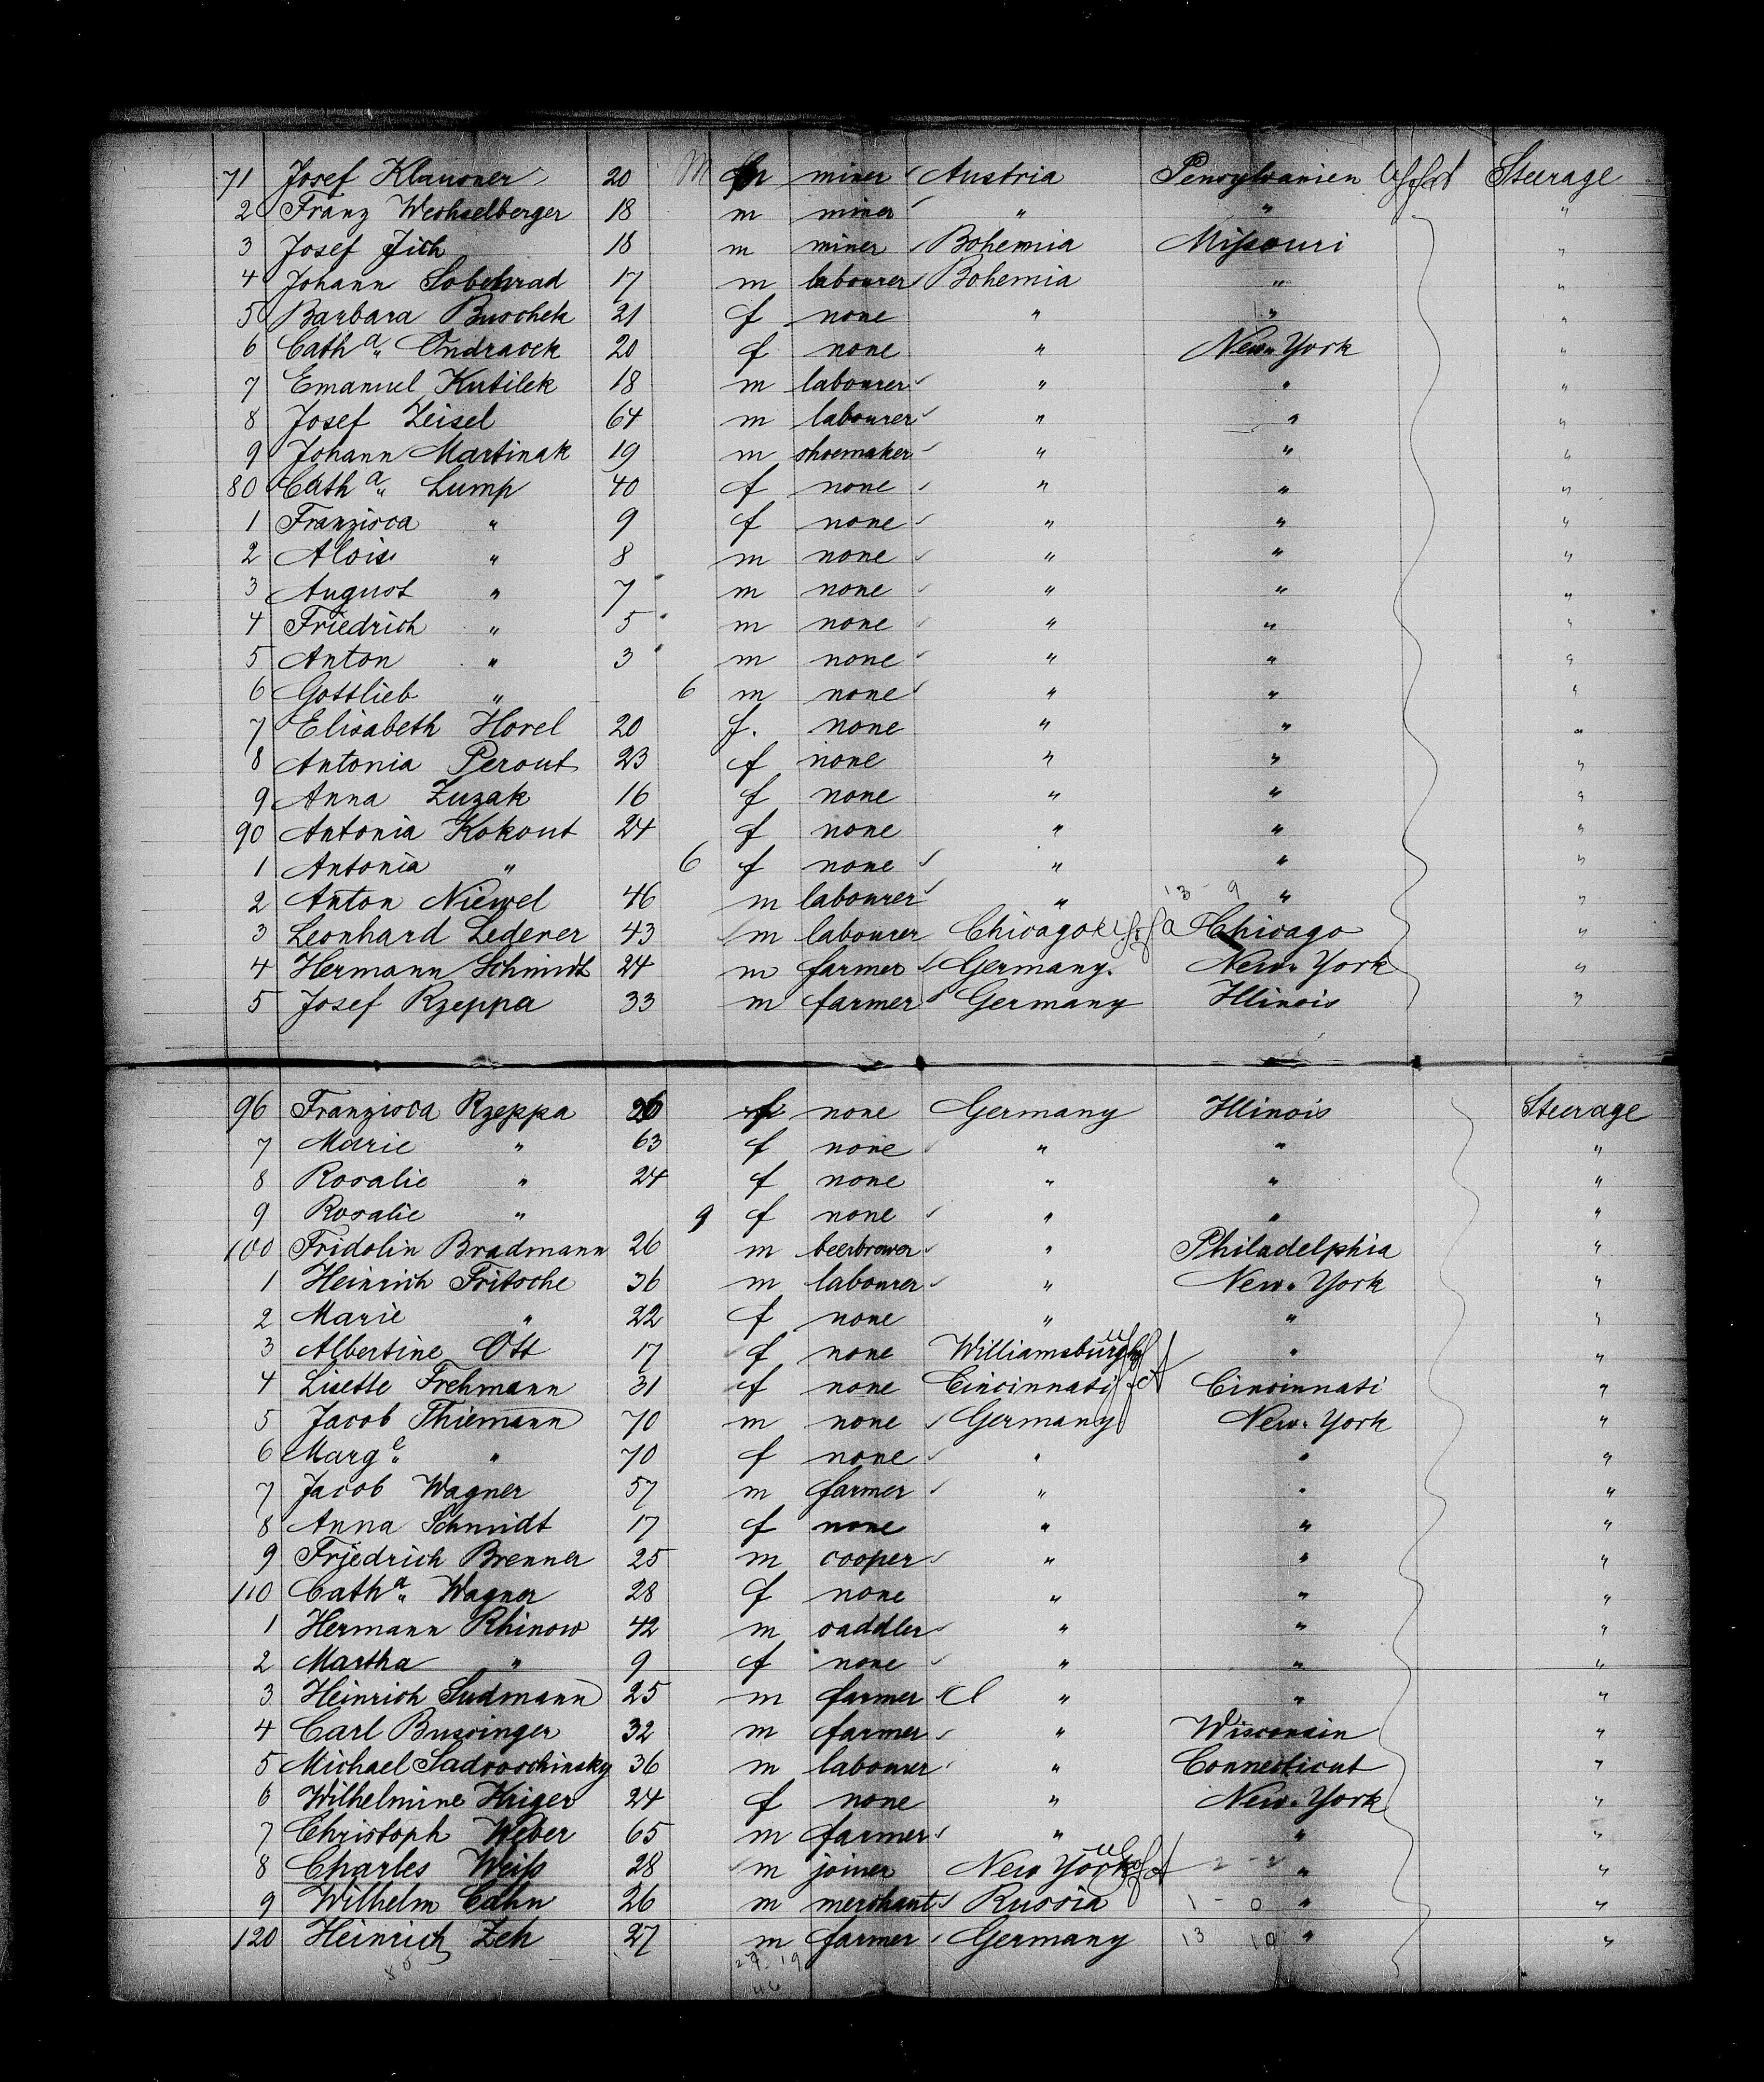 71 Josef Klausner 20 M miner Austria Pensylvanien Steerage
2 Franz Wechselberger 18 m miner " " "
3 Josef Jich 18 m miner Bohemia Missouri "
4 Johann Sobehrad 17 m labourer Bohemia " "
5 Barbara Buschek 21 f none " " "
6 Cath a " Ondracek 20 f none " New-York "
7 Emanuel Kutilek 18 m labourer " " "
8 Josef Zeisel 64 m labourer " " "
9 Johann Martinak 19 m shoemaker " " "
80 Cath a " Lump 40 f none " " "
1 Franzisca " 9 f none " " "
2 Alois " 8 m none " " "
3 August " 7 m none " " "
4 Friedrich " 5 m none " " "
5 Anton " 3 m none " " "
6 Gottlieb " 6 m none " " "
7 Elisabeth Horel 20 f. none " " "
8 Antonia Perout 23 f none " " "
9 Anna Zuzak 16 f none " " "
90 Antonia Kokout 24 f none " " "
1 Antonia " 6 f none " " "
2 Anton Niewel 46 m labourer " 13 - 9 " "
3 Leonhard Lederer 43 m labourer Chicago Chicago "
4 Hermann Schmidt 24 m farmer Germany. New-York "
5 Josef Rzeppa 33 m farmer Germany Illinois "
96 Franzisca Rzeppa 26 f none Germany Illinois Steerage
7 Marie " 63 f none " " "
8 Rosalie " 24 f none " " "
9 Rosalie " 9 f none " " "
100 Fridolin Bradmann 26 m beerbrower " Philadelphia "
1 Heinrich Fritsche 36 m labourer " New-York "
2 Marie " 22 f none " " "
3 Albertine Ott 17 f none Williamsburgh " "
4 Lisette Frehmann 31 f none Cincinnati Cincinnati "
5 Jacob Thiemann 70 m none Germany New-York "
6 Marg e " " 70 f none " " "
7 Jacob Wagner 57 m farmer " " "
8 Anna Schmidt 17 f none " " "
9 Friedrich Brenner 25 m cooper " " "
110 Cath a " Wagner 28 f none " " "
1 Hermann Rhinow 42 m saddler " " "
2 Martha " 9 f none " " "
3 Heinrich Sudmann 25 m farmer " " "
4 Carl Bussinger 32 m farmer " Wisconsin "
5 Michael Sadroschinsky 36 m labourer " Connecticut "
6 Wilhelmine Kriger 24 f none " New-York "
7 Christoph Weber 65 m farmer " " "
8 Charles Weiss 28 m joiner New York 2 - 2 " "
9 Wilhelm Cahn 26 m merchant Russia 1 - 0 " "
120 Heinrich Zeh 27 m farmer Germany 13 10 " "
80 27. 19
46